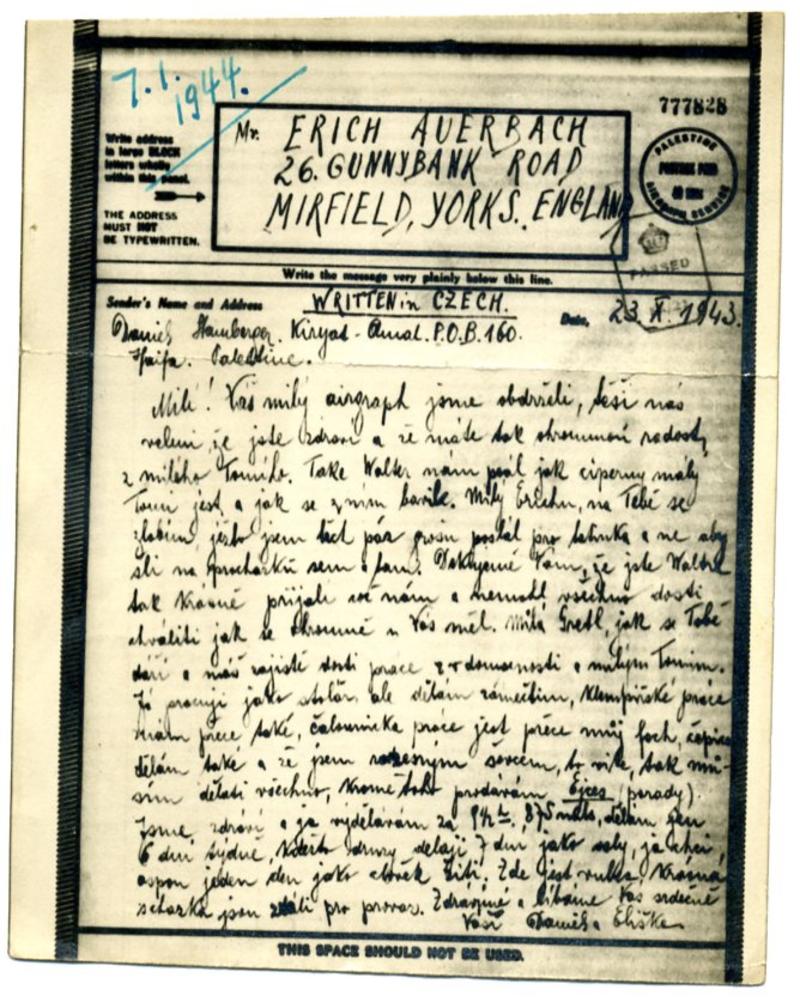 7.1.
1944.
777828
Write address
in large BLOCK
letters wholly
within this panel.
THE ADDRESS
MUST NOT
BE TYPEWRITTEN.
Mr. ERICH AUERBACH
26. GUNNYBANK ROAD
MIRFIELD, YORKS. ENGLAND
PALESTINE
POSTAGE PAID
AIRGRAPH SERVICE
PASSED
Write the message very plainly below this line.
Sender's Name and Address WRITTEN in CZECH. Date, 23. X. 1943.
Daniel Hamberger. Kiryat-Amal. P.O.B. 160.
Haifa. Palestine.
Milí! Váš milý airgraph jsme obdrželi, těší nás
velmi, že jste zdraví a že máte tak ohromnou radost
z milého Tomího. Také Walter nám psal jak čiperný malý
Tomi jest, a jak se s ním bavil. Milý Erichu, na Tebe se
zlobím, jsem Ti pár poslal pro a ne aby
šli na sem a tam. Děkujeme Vám, že jste Waltra
tak krásně přijali, nám a nemohl všechno dosti
chváliti jak se ohromně u Vás měl. Milá Gretl, jak se Tobě
daří a máš zajisté dosti práce s domácností a milým Tomim.
Já pracuji jako stolár, ale dělám klempířské práce
mám přece také, čalounická práce jest přece můj foch,
dělám také a že jsem ševcem, to víte, tak mu-
sím dělati všechno, kromě toho prodávám Ejces (porady).
Jsme zdrávi a já vydělávám za 9½ h. 875 mils, dělám jen
6 dní týdně, kdežto druzy dělají 7 dní jako osly, já chci
aspoň jeden den jako člověk žíti. Zde jest krásná
jsou pro Zdravíme a líbáme Vás srdečně
Vaši Daniel a Eliška
THIS SPACE SHOULD NOT BE USED.